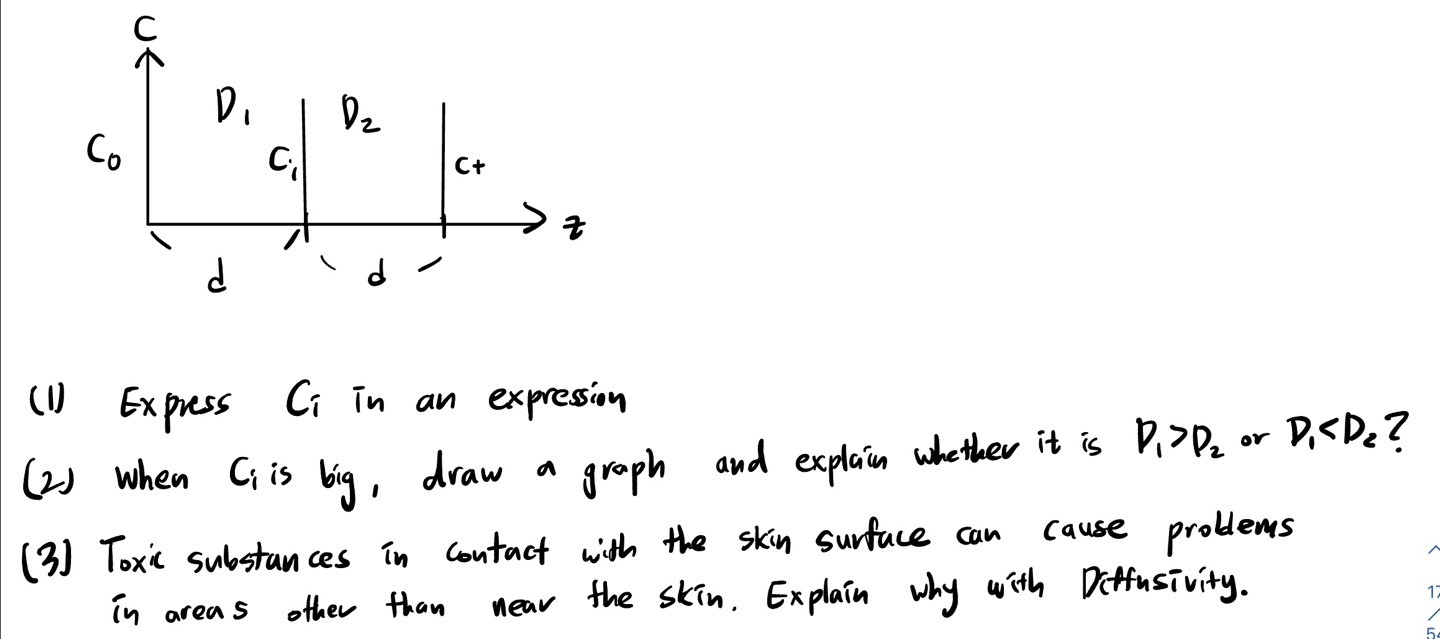 C
D₁ D₂
C₀ Cᵢ C+
z
d d
(1) Express Cᵢ in an expression
(2) When Cᵢ is big, draw a graph and explain whether it is D₁>D₂ or D₁<D₂?
(3) Toxic substances in contact with the skin surface can cause problems
in areas other than near the skin. Explain why with Diffusivity.
17